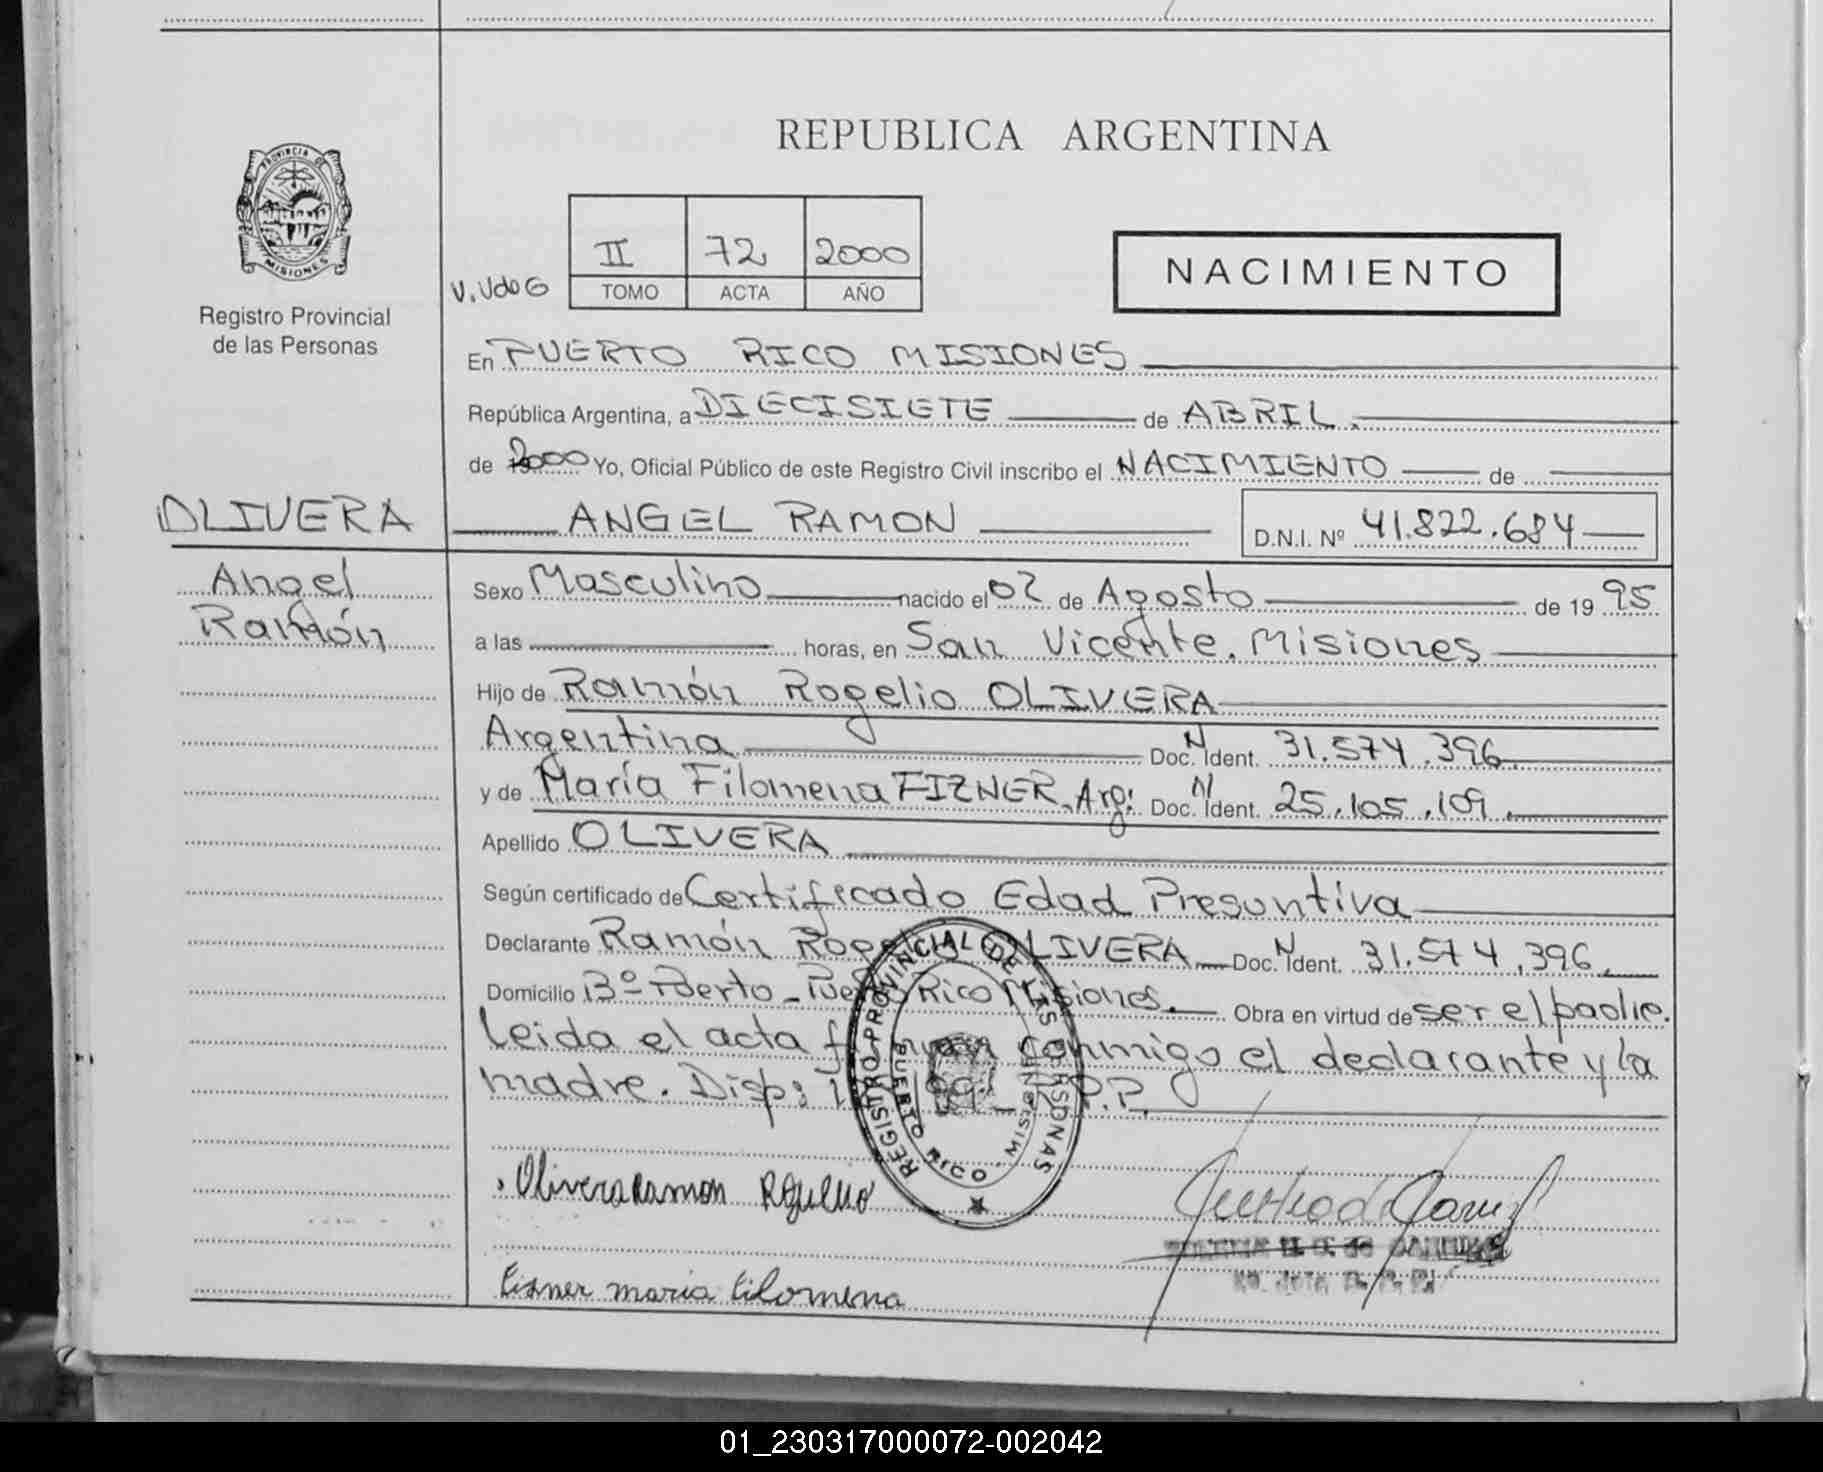 REPUBLICA ARGENTINA
PROVINCIA DE
MISIONES
Registro Provincial
de las Personas
V. Udo G
II 72 2000
TOMO ACTA AÑO
NACIMIENTO
En PUERTO RICO MISIONES
República Argentina, a DIECISIETE de ABRIL.
de 2000 Yo, Oficial Público de este Registro Civil inscribo el NACIMIENTO de
OLIVERA
ANGEL RAMON
D.N.I. Nº 41.822.684
Angel
Ramón
Sexo Masculino nacido el 02 de Agosto de 19 95
a las horas, en San Vicente. Misiones
Hijo de Ramón Rogelio OLIVERA
Argentina Doc. N Ident. 31.574.396
y de María Filomena FIZNER, Arg: Doc. N Ident. 25.105.109.
Apellido OLIVERA
Según certificado de Certificado Edad Presuntiva
Declarante Ramón Rogelio OLIVERA Doc. N Ident. 31.574.396.
Domicilio Bº Puerto - Puerto Rico Misiones. Obra en virtud de ser el padre.
Leida el acta firman conmigo el declarante y la
madre. Disp: R.P.P.
REGISTRO PROVINCIAL DE LAS PERSONAS
PUERTO RICO - MISIONES
Olivera Ramon Rogelio
Fizner maria filomena
01_230317000072-002042